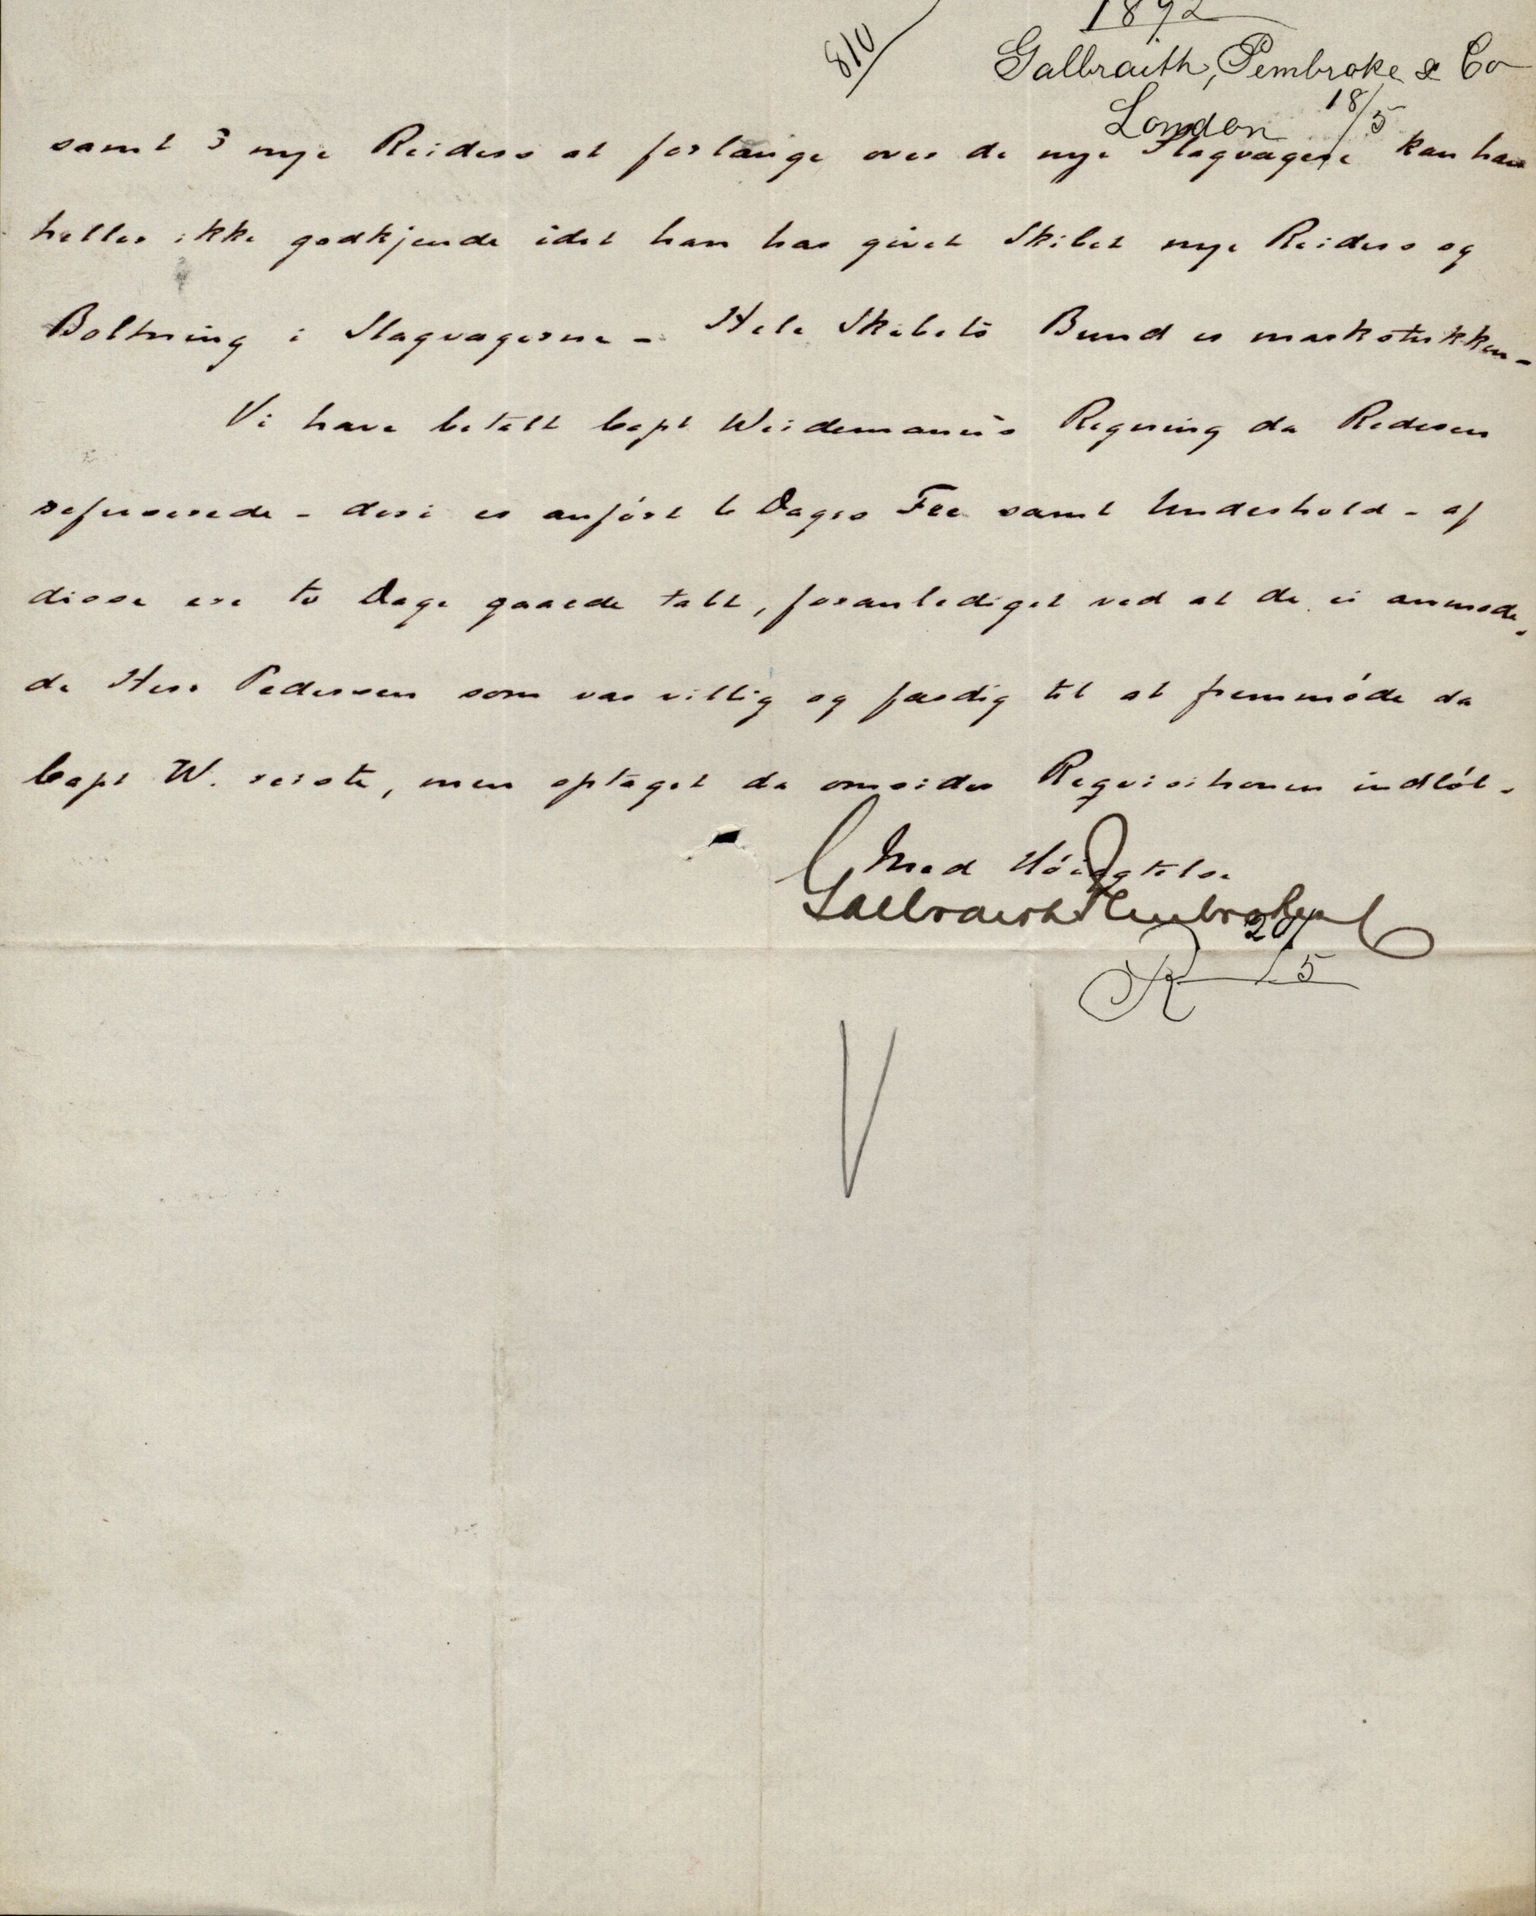 1892
810
Galbraith, Pembroke & Co
London 18/5
samt 3 nye Reiders at forlange over de nye Slagvagere kan han
heller ikke godkjende idet han har givet Skibet nye Reiders og
Boltning i Slagvagerne - Hele Skibets Bund er markstukken -
Vi have betalt Capt Weidemann's Regning da Rederen
refuserede - deri er anført 6 Dages Fee samt Underhold - af
disse ere to Dage gaaede tabt, foranlediget ved at de ei anmode-
de Herr Pedersen som var villig og færdig til at fremmøde da
Capt W. reiste, men optaget da omsider Reqvisitionen indløb -
Med Høiagtelse
Galbraith Pembroke & Co
R 20/5